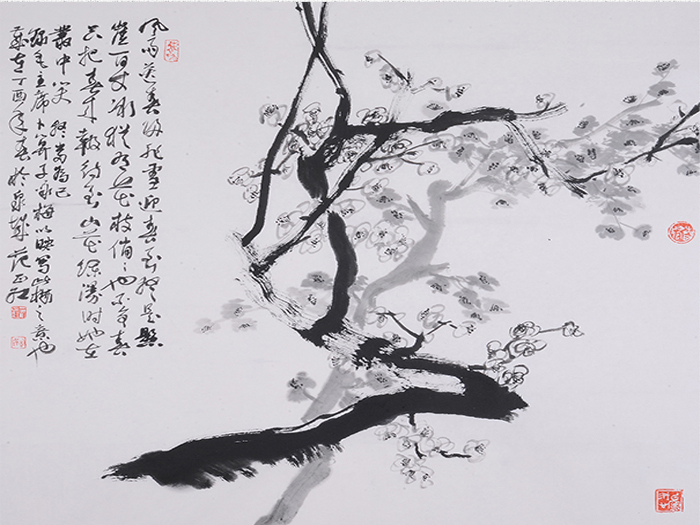 风雨送春归飛雪迎春到已是懸
崖百丈冰猶有花枝俏〻也不争春
只把春来報待到山花爛漫时她在
叢中笑
錄毛主席卜算子詠梅以映寫此梅之意也
歲在丁酉年春於